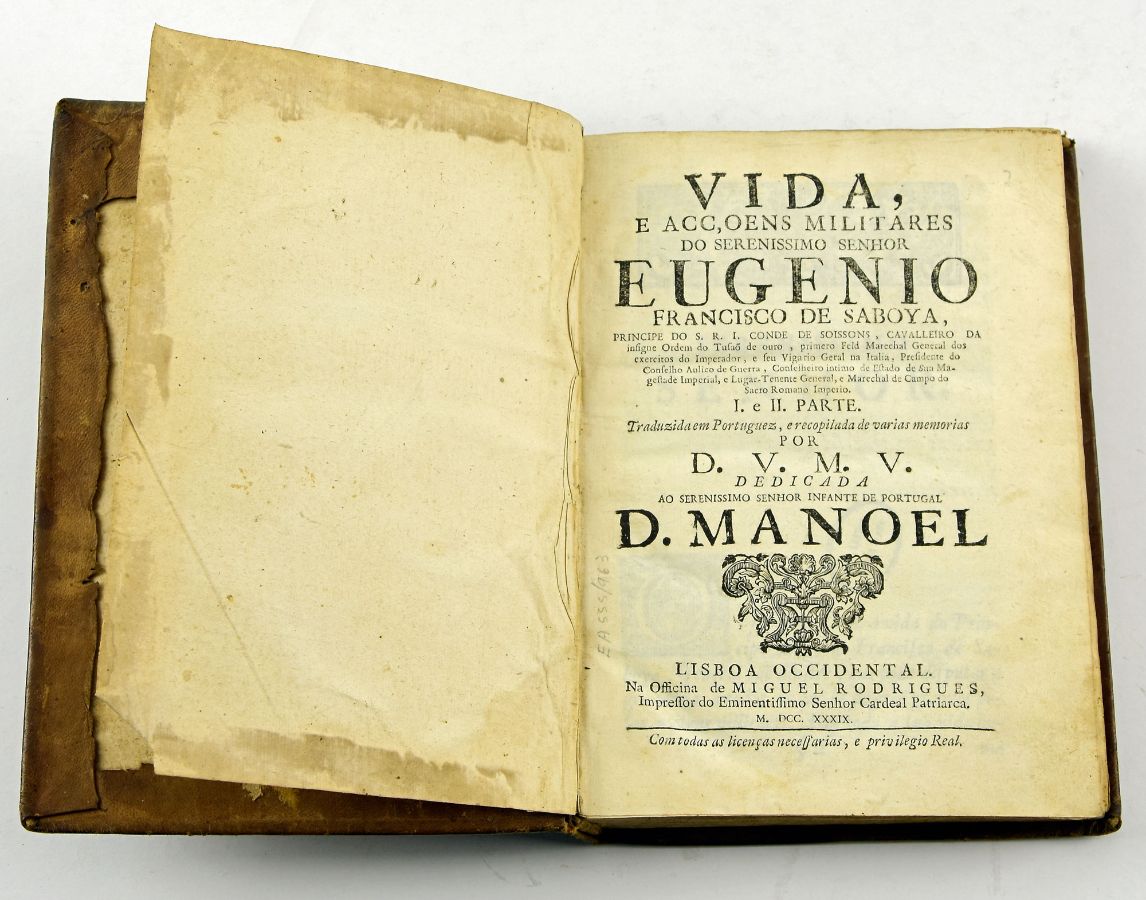 VIDA,
E ACC,OENS MILITARES
DO SERENISSIMO SENHOR
EUGENIO
FRANCISCO DE SABOYA,
PRINCIPE DO S. R. I. CONDE DE SOISSONS, CAVALLEIRO DA
insigne Ordem do Tusaõ de ouro, primero Feld Marechal General dos
exercitos do Imperador, e seu Vigario Geral na Italia, Presidente do
Conselho Aulico de Guerra, Conselheiro intimo de Estado de Sua Ma-
gestade Imperial, e Lugar-Tenente General, e Marechal de Campo do
Sacro Romano Imperio.
I. e II. PARTE.
Traduzida em Portuguez, e recopilada de varias memorias
POR
D. V. M. V.
DEDICADA
AO SERENISSIMO SENHOR INFANTE DE PORTUGAL
D. MANOEL
LISBOA OCCIDENTAL.
Na Officina de MIGUEL RODRIGUES,
Impressor do Eminentissimo Senhor Cardeal Patriarca.
M. DCC. XXXIX.
Com todas as licenças necessarias, e privilegio Real.